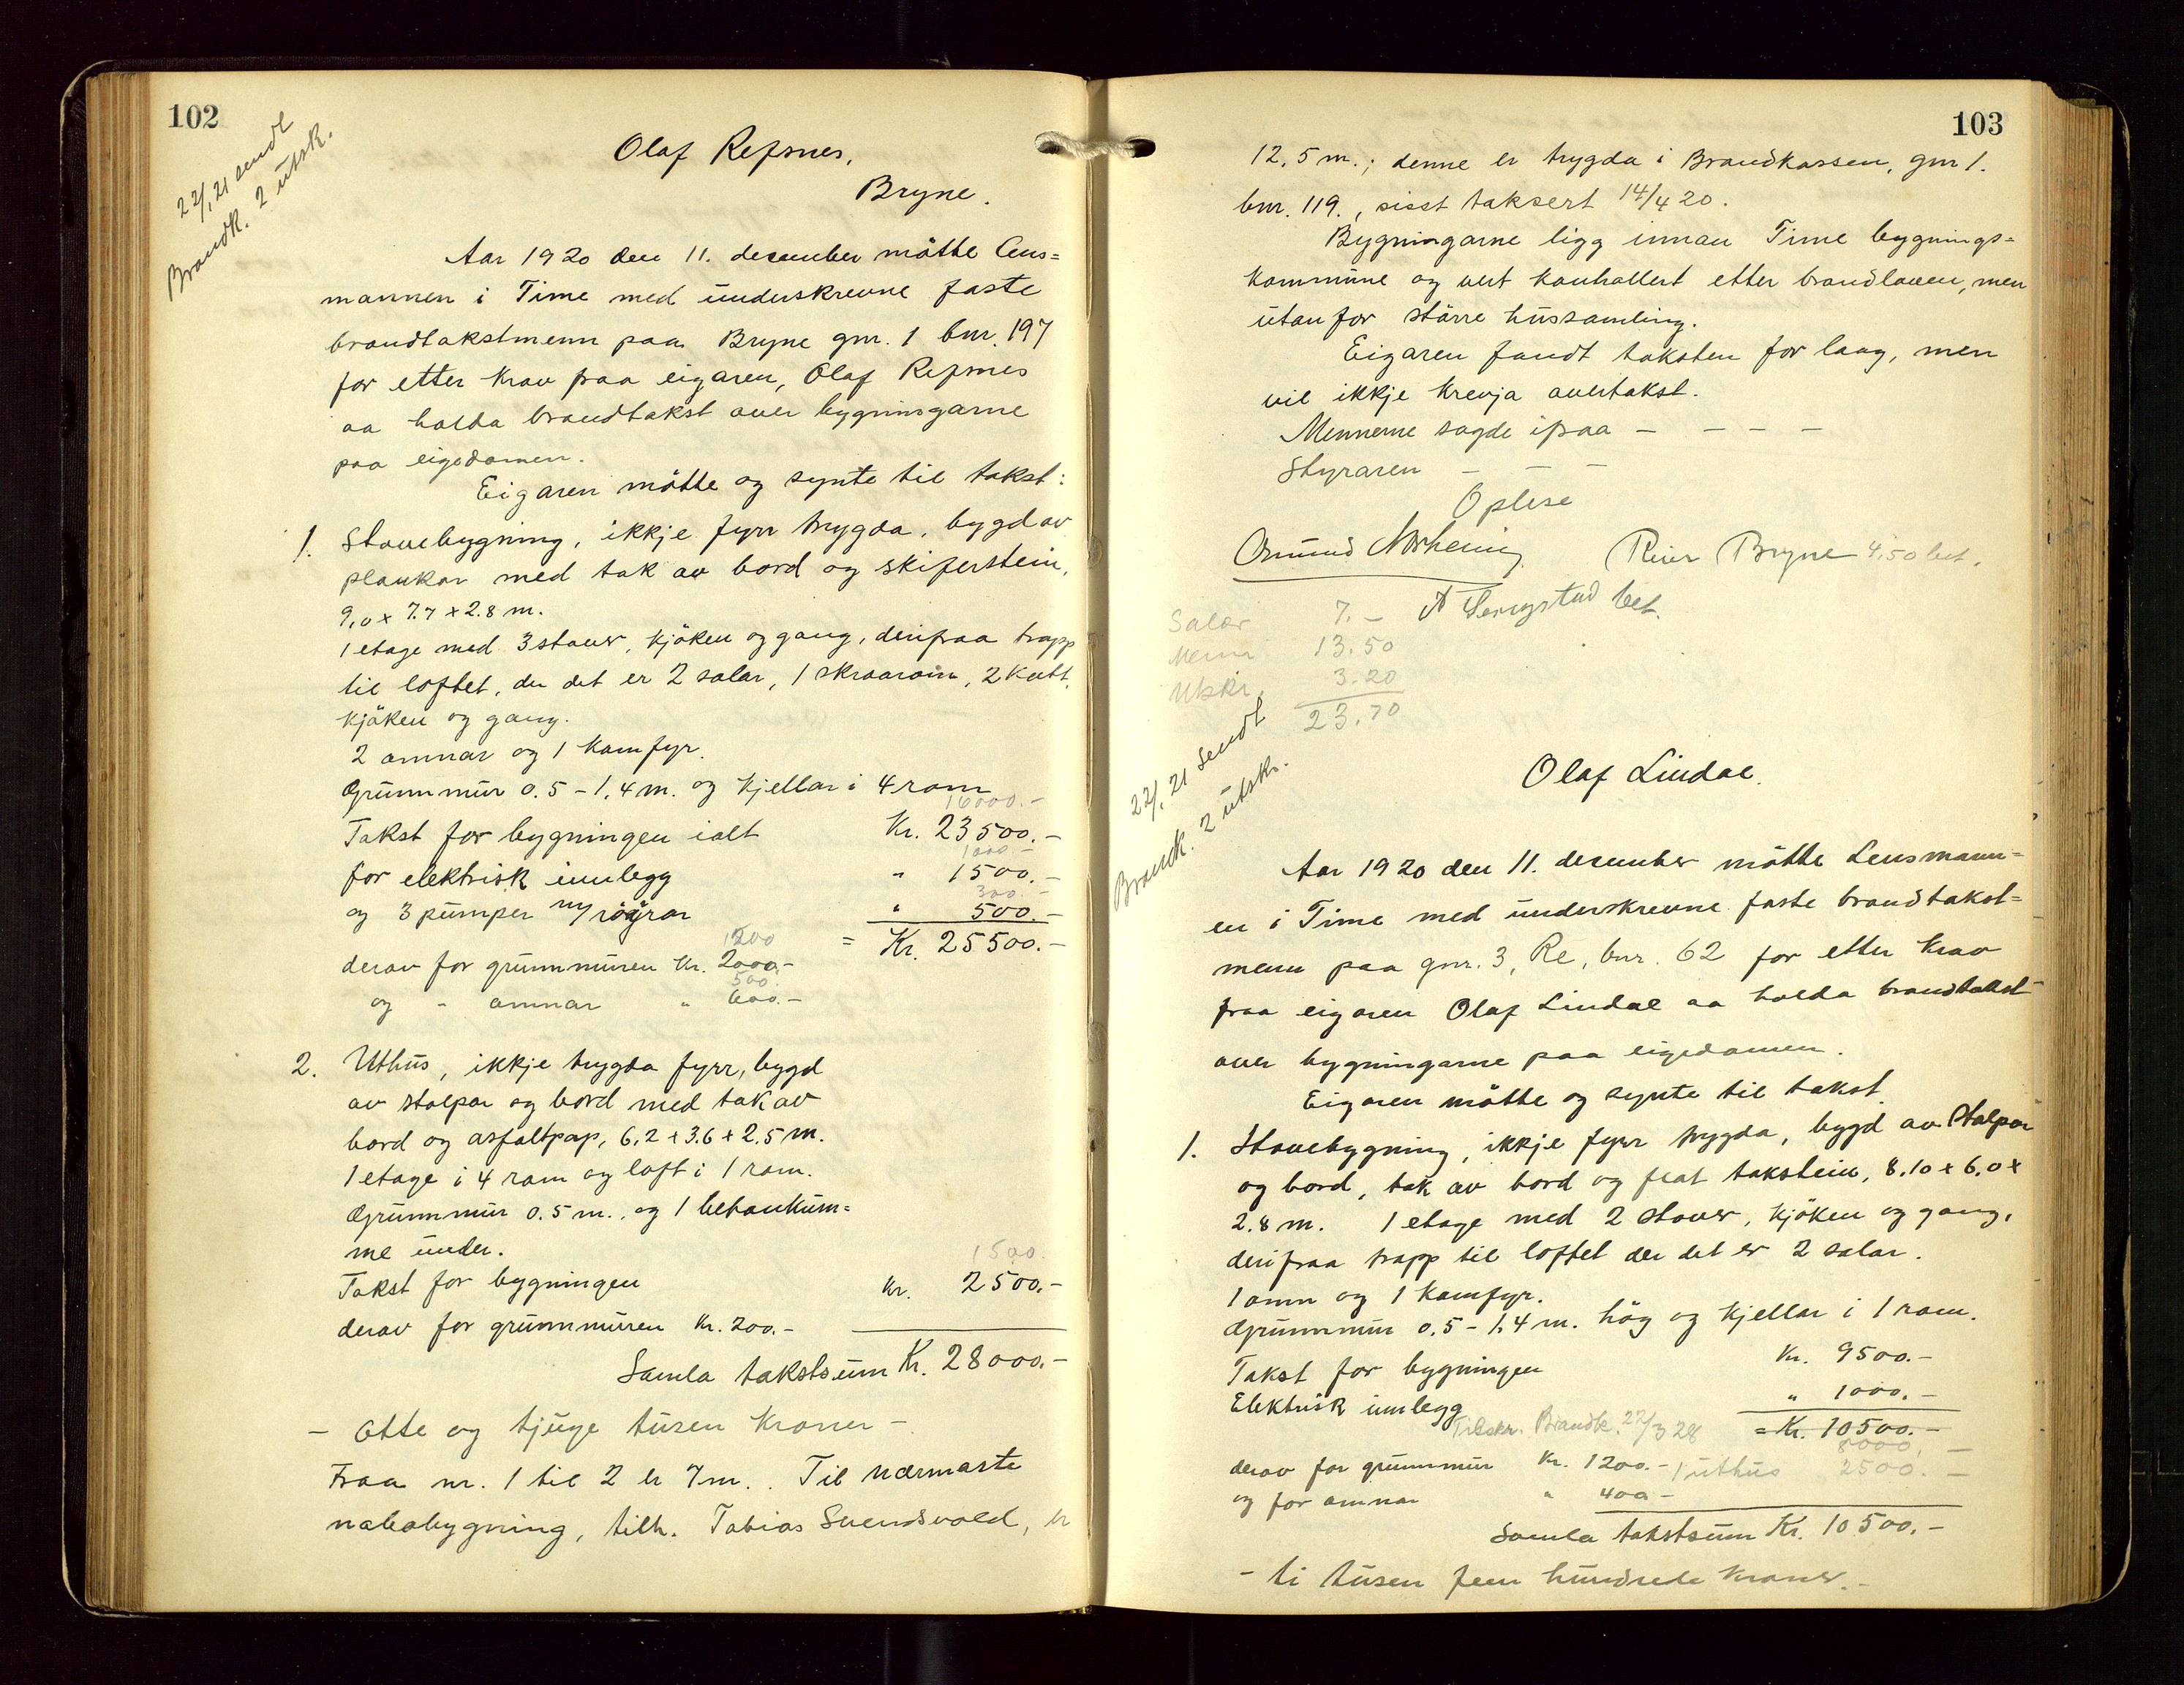 102
22/1 21 sendt
Brandk. 2 utsk.
Olaf Refsnes,
Bryne.
Aar 1920 den 11. desember mötte Lens=
mannen i Time med underskrevne faste
brandtakstmenn paa Bryne gnr. 1 bnr. 197
for etter krav fraa eigaren, Olaf Refsnes
aa halda brandtakst over bygningarne
paa eigedomen.
Eigaren mötte og synte til takst:
1. Stovebygning, ikkje fyrr trygda, bygd av
plankar med tak av bord og skiferstein,
9,0 x 7.7 x 2.8 m.
1 etage med 3 stover, kjöken og gang, derifraa trapp
til loftet, der det er 2 salar, 1 skraarom, 2 kott,
kjöken og gang.
2 omnar og 1 komfyr.
Grunnmur 0.5 - 1,4 m. og kjellar i 4 rom
16000.-
Takst for bygningen ialt Kr. 23500.-
1000.-
for elektrisk innlegg " 1500.-
300.-
og 3 pumper m/ röyrar " 500.-
= Kr. 25500.-
1200
derav for grunnmuren Kr. 2000.-
500.
og " omnar " 600.-
2. Uthus, ikkje trygda fyrr, bygd
av stolpar og bord med tak av
bord og asfaltpap, 6.2 x 3.6 x 2.5 m.
1 etage i 4 rom og loft i 1 rom.
Grunnmur 0.5 m., og 1 betonkum=
me under.
1500.
Takst for bygningen Kr. 2500.-
derav for grunnmuren Kr. 200.-
Samla takstsum Kr. 28000.-
- Otte og tjuge tusen kroner -
Fraa nr. 1 til 2 er 7 m. Til nærmaste
nabobygning, tilh. Tobias Svendsvold, er
103
12,5 m.; denne er trygda i Brandkassen, gnr 1.
bnr. 119., sisst taksert 14/4 20.
Bygningarne ligg innan Time bygnings=
kommune og vert kontrollert etter brandloven, men
utanfor större hussamling.
Eigaren fandt taksten for laag, men
vil ikkje krevja overtakst.
Mennerne sagde ifraa - - - -
Styraren - - -
Oplese
Osmund Norheim Reier Bryne 4.50 bet.
bet.
Salær 7.-
Menn 13.50
Utskr. 3.20
23.70
22/1 21 sendt
Brandk. 2 utskr.
Olaf Lindal.
Aar 1920 den 11. desember mötte Lensmann=
en i Time med underskrevne faste brandtakst=
menn paa gnr. 3, Re, bnr. 62 for etter krav
fraa eigaren Olaf Lindal aa halda brandtakst
over bygningarne paa eigedomen.
Eigaren mötte og synte til takst.
1. Stovebygning, ikkje fyrr trygda, bygd av stolpar
og bord, tak av bord og flat takstein, 8.10 x 6.0 x
2.8 m. 1 etage med 2 stover, kjöken og gang,
derifraa trapp til loftet der det er 2 salar.
1 omn og 1 komfyr.
Grunnmur 0.5 - 1,4 m. hög og kjellar i 1 rom.
Takst for bygningen Kr. 9500.-
Elektrisk innlegg " 1000.-
Tilskr. Brandk. 22/3 28 = Kr. 10500.-
8000.-
derav for grunnmur Kr. 1200.- 1 uthus 2500.-
og for omnar " 400.-
Samla takstsum Kr. 10500.-
- ti tusen fem hundrede kroner.-